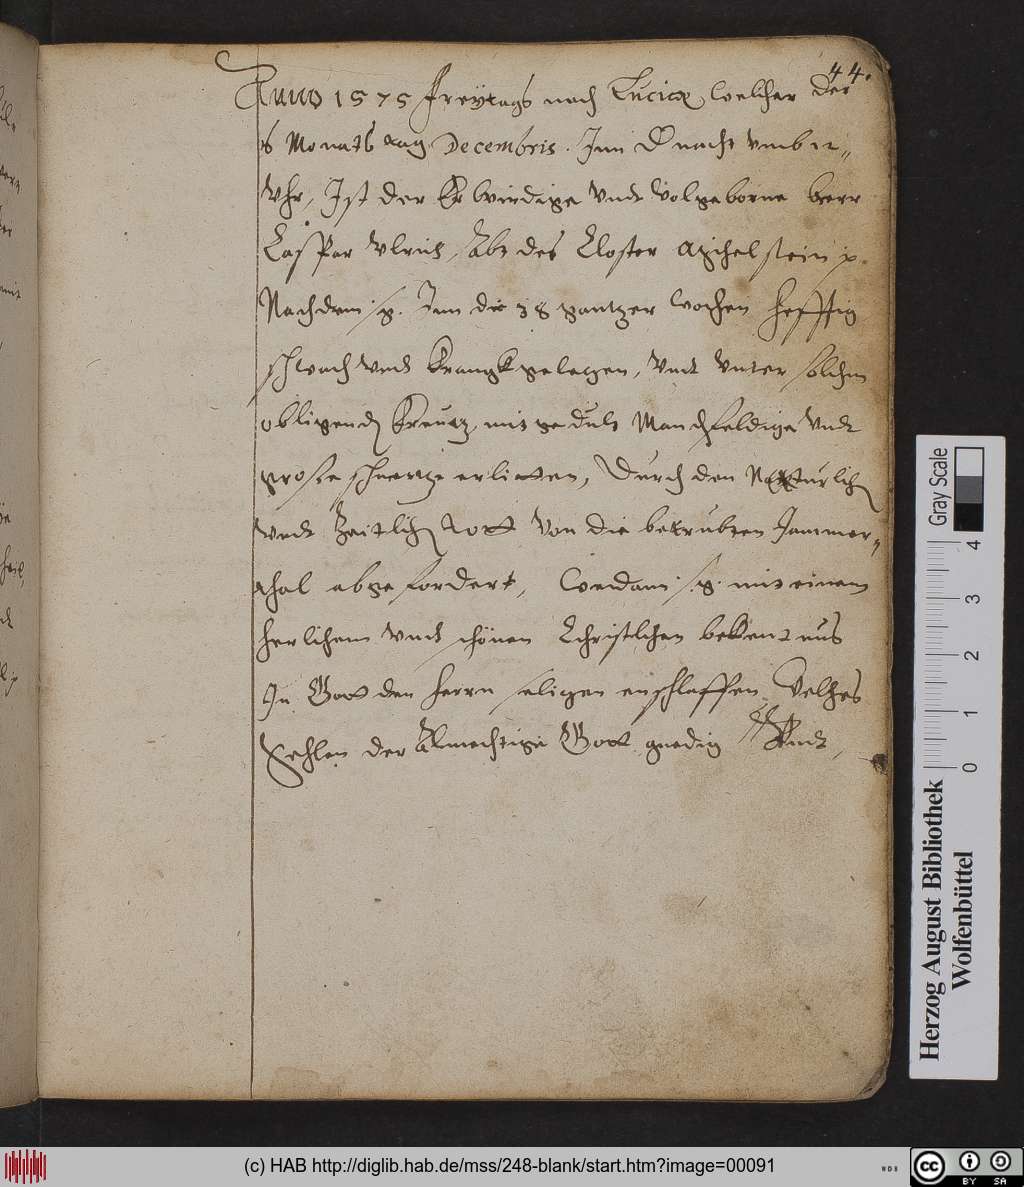 44.
Anno 1575 freytags nach Luciæ welcher der
16 Monats tag Decembris. Inn D nacht umb 12
Vhr, Ist der Erwirdige vndt Wolgeborne herr
Caspar Vlrich, Abt des Closter
Nachdem s.g. Inn die 38 gantzer wochen hefftig
schwach vndt krangk gelegen, vndt vnter solchem
obligenden Kreutz mit gedult Manchfeldige vndt
grose schmertzen erlitten, durch den Naturlichen
vndt Zeitlichen vonn die betrubten Jammer-
thal abgefordert, Vendam s.g. mit einem
herlichem vndt schönen Christlichen bekentnus
In Gott den herrn seligen enschlaffen Welches
Sehlen der Almechtige Gott gnedig
Gray Scale
4
3
2
1
0
Herzog August Bibliothek
Wolfenbüttel
(c) HAB http://diglib.hab.de/mss/248-blank/start.htm?image=00091
WDB
cc BY SA